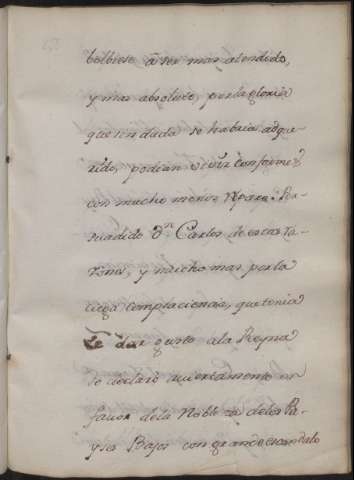 bolbiese à ser mas atendido,
y mas absoluto, por la gloria
que sin duda se habria adque-
rido, podian vivir conformes
con mucho menos reparo: Per-
suadido Dn. Carlos de estas ra-
zones, y mucho mas por la
ciega complacencia, que tenia
de dar gusto a la Reyna
se declaró aviertamente en
favor de la Nobleza de los Pa-
yses Bajos con grande escandalo